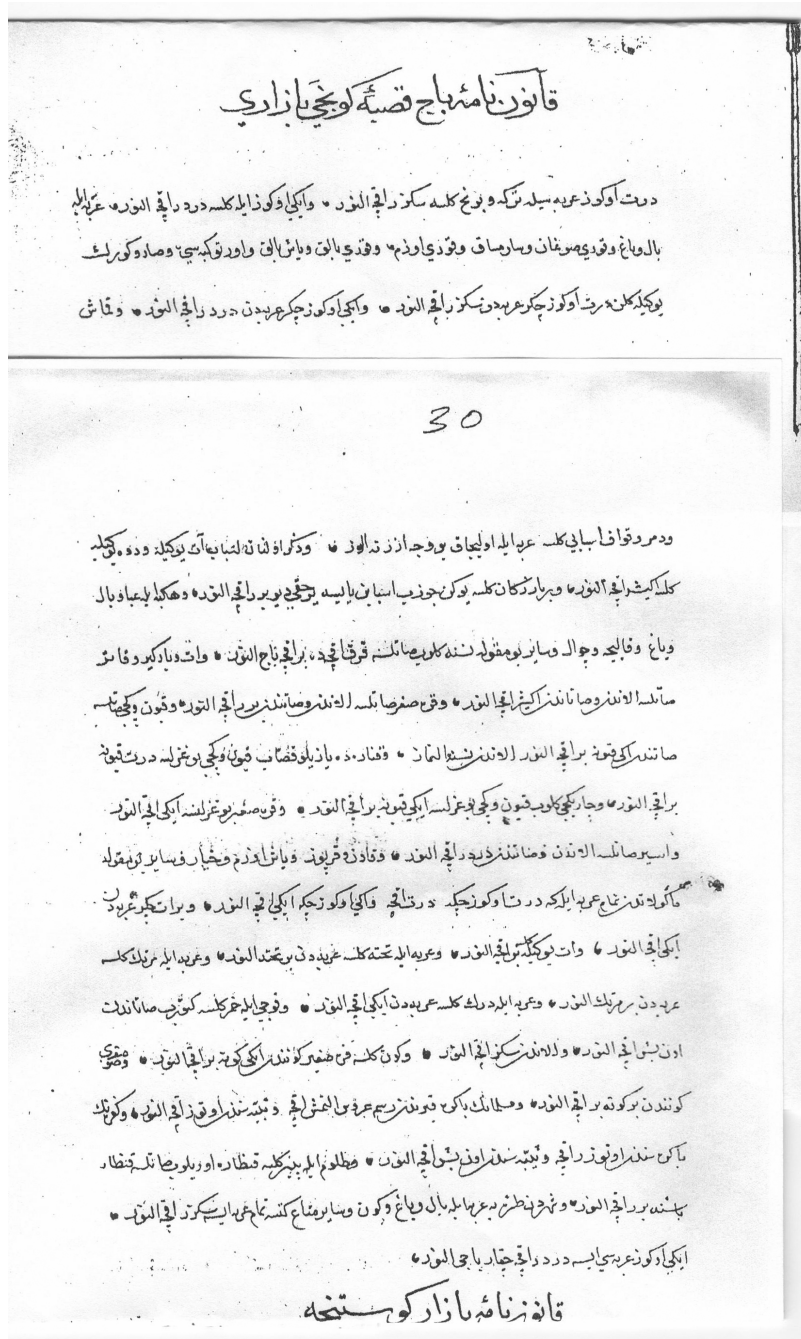 قانون نامۀ باج قصبۀ کونجی بازاری
درت اوکوز عربه سیله ترکه و برنج کلسه سکزر اقچه النور و ایکی اوکوز ایله کلسه دردر اقچه النور عربه ایله
بال و یاغ و قوری صوغان و سارمساق و قوری اوزم و قوری بالق و یاش بالق و اورتو کبه سی و صادو کورلك
یوکیله کلن درت اوکوز چکر عربه دن سکزر اقچه النور و ایکی اوکوز چکر عربه دن دردر اقچه النور و قماش
30
و دمور و توابع اسبابی کلسه عربه ایله اولیجاق بو وجه اوزرنه النور و ذکر اولنان اسباب آت یوکیله و دوه یوکیله
کلسه ایکیشر اقچه النور و بر بازركان کلسه یوکن چوزب اسبابن یایسه یر حقی دیو بر اقچه النور و هکبه ایله عبا و بال
و یاغ و قالیچه و چوال و سایر بو مقوله نسنه کلوب صاتلسه قرق اقچه ده بر اقچه باج النور و آت و بارکیر و قاطر
صاتلسه الاندن و صاتاندن ایکیشر اقچه النور و قره صغر صاتلسه الاندن و صاتندن برر اقچه النور و قیون و کچی صاتلسه
صاتندن ایکی قیونه بر اقچه النور الاندن نسنه النماز و قناره ده یازیلو قصاب قیون و کچی بوغزلسه درت قیونه
بر اقچه النور و خارجدن کلوب قیون و کچی بوغزلسه ایکی قیونه بر اقچه النور و قره صغر بوغزلسه ایکی اقچه النور
و اسیر صاتلسه الاندن و صاتندن دردر اقچه النور و قاون و قرپوز و یاش اوزم و خیار و سایر بو مقوله
مأکولاتدن تمام عربه ایله که درت اوکوز چکه درت اقچه و ایکی اوکوز چکه ایکی اقچه النور و بر آت چکر عربه دن
ایکی اقچه النور و آت یوکیله بر اقچه النور و عربه ایله تخته کلسه عربه دن بر تخته النور و عربه ایله مرتك کلسه
عربه دن بر مرتك النور و عربه ایله درك کلسه عربه دن ایکی اقچه النور و فوچی ایله خمر کلسه کتورب صاتاندن
اون بش اقچه النور و الاندن سکز اقچه النور و کون کلسه قره صغر کونندن ایکی کونه بر اقچه النور و صو صغری
کونندن بر کونه بر اقچه النور و مسلمانك باکره قیزندن رسم عروس التمش اقچه و ثیبه سندن اوتوز اقچه النور و کافرك
باکره سندن اوتوز اقچه و ثیبه سندن اون بش اقچه النور و طلوم ایله پنیر کلسه قنطاره اوریلوب صاتلسه قنطار
باشنه برر اقچه النور و شهردن طشره یه عربه ایله بال و یاغ و کون و سایر متاع کتسه تمام عربه ایسه سکزر اقچه النور
ایکی اوکوز عربه سی ایسه دردر اقچه چقار باجی النور
قانون نامۀ بازار کوستنجه